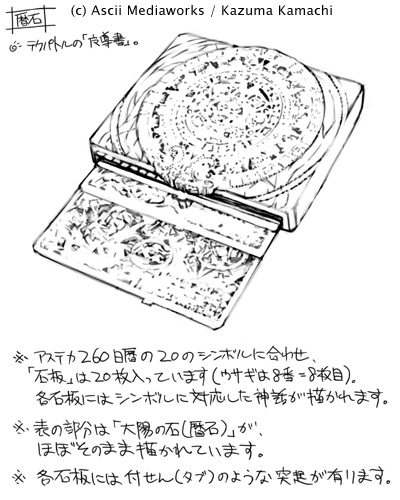 暦石
(c) Ascii Mediaworks / Kazuma Kamachi
テクパトルの「原典」。
※ アステカ260日暦の20のシンボルに合わせ、
「石板」は20枚入っています(ウサギは8番=8枚目)。
各石板にはシンボルに対応した神話が描かれます。
※ 表の部分は「太陽の石(暦石)」が、
ほぼそのまま描かれています。
※ 各石板には付せん(タブ)のような突起が有ります。